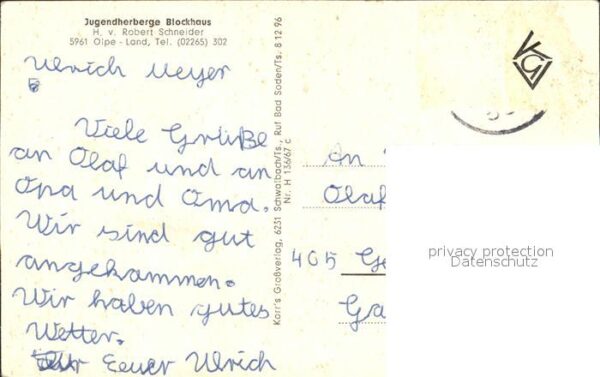 Jugendherberge Blockhaus
H. v. Robert Schneider
5961 Olpe - Land, Tel. (02265) 302
Ulrich Meyer
Viele Grüße
an Olaf und an
Opa und Oma.
Wir sind gut
angekommen.
Wir haben gutes
Wetter.
Euer Ulrich
Karr's Großverlag, 6231 Schwalbach/Ts., Ruf Bad Soden/Ts. 8 12 96
Nr. H 136/67 c
KGV
An
Olaf
405
Ga
privacy protection
Datenschutz